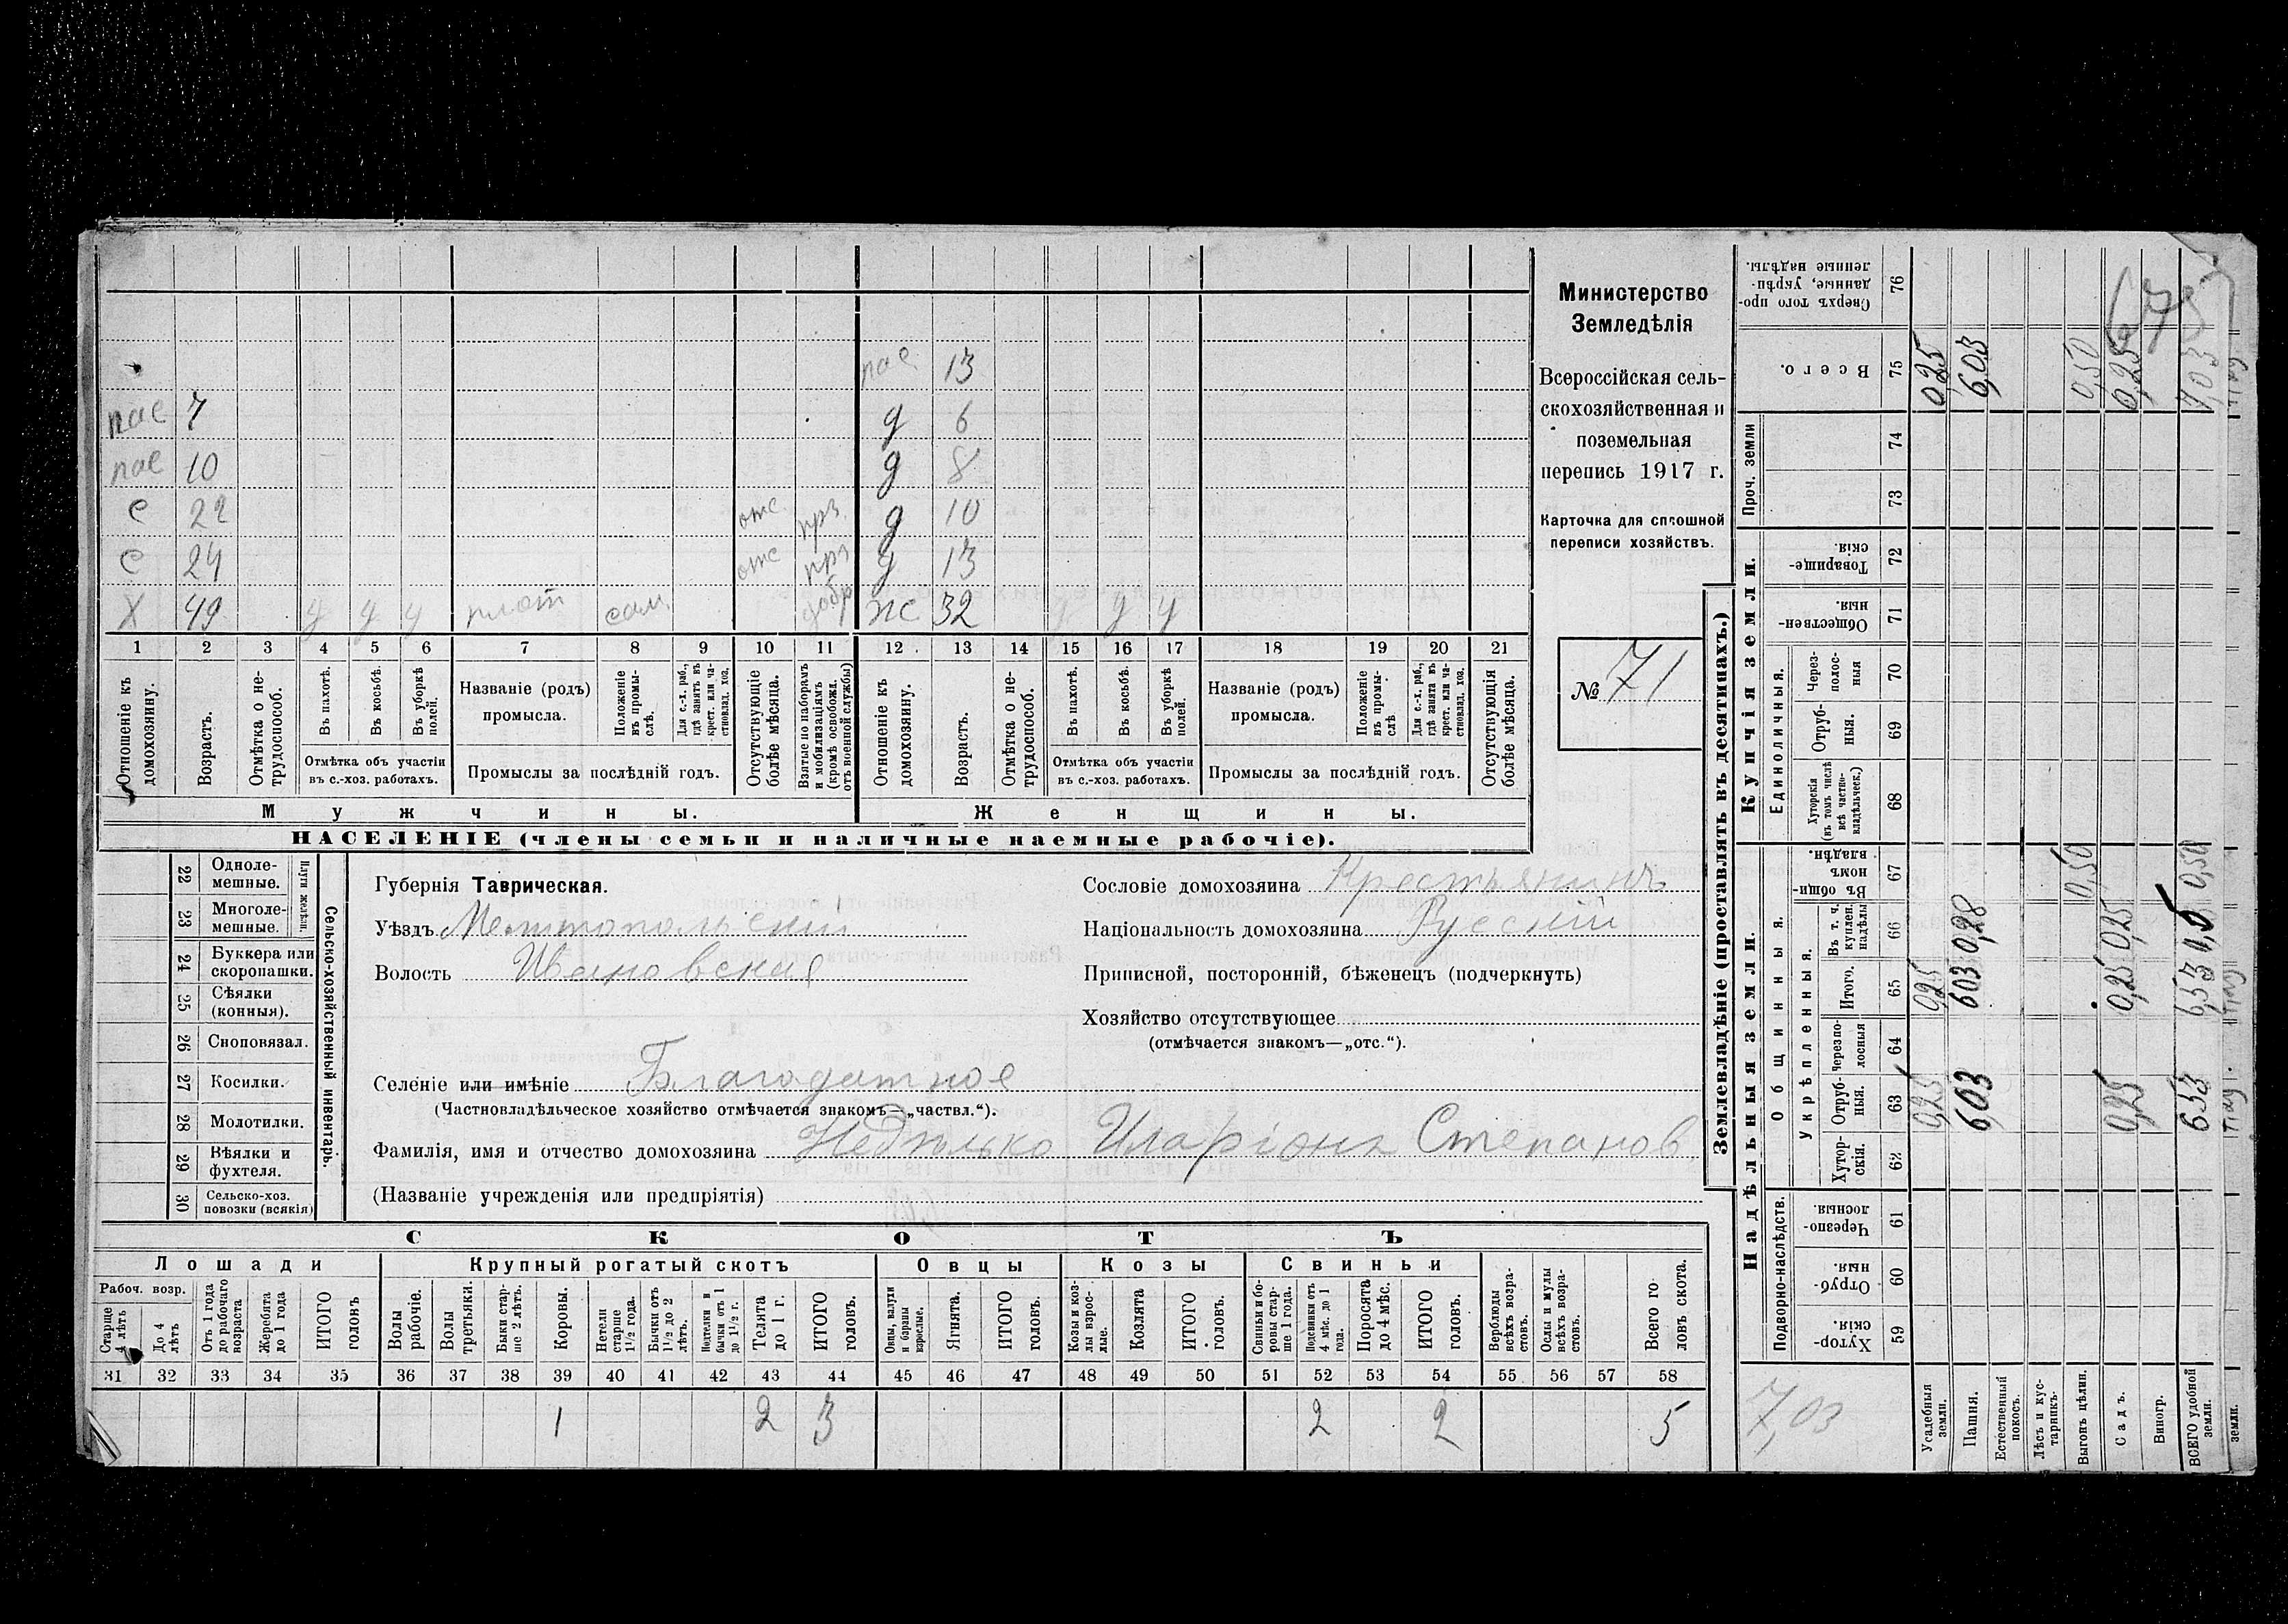 Министерство
Земледѣлія
Всероссійская сель-
скохозяйственная и
поземельная
перепись 1917 г.
Карточка для сплошной
переписи хозяйствъ.
№ 71
пас 13
пас 7 д 6
пас 10 д 8
с 22 отс прз. д 10
с 24 отс прз д 13
Х 49 у у у плот сам. добр жс 32 у у у
1 2 3 4 5 6 7 8 9 10 11 12 13 14 15 16 17 18 19 20 21
Отношеніе къ домохозяину.
Возрастъ.
Отмѣтка о не-
трудоспособ.
Въ пахотѣ.
Въ косьбѣ.
Въ уборкѣ
полей.
Отмѣтка объ участіи
въ с.-хоз. работахъ.
Названіе (родъ)
промысла.
Положеніе
въ промы-
слѣ.
Для с.-х. раб.,
гдѣ занятъ въ
крест. или ча-
стновлад. хоз.
Промыслы за послѣдній годъ.
Отсутствующіе
болѣе мѣсяца.
Взятые по наборамъ
и мобилизаціямъ
(кромѣ освобожд.
отъ военной службы)
Отношеніе къ
домохозяину.
Возрастъ.
Отмѣтка о не-
трудоспособ.
Въ пахотѣ.
Въ косьбѣ.
Въ уборкѣ
полей.
Отмѣтка объ участіи
въ с.-хоз. работахъ.
Названіе (родъ)
промысла.
Положеніе
въ промы-
слѣ
Для с.-х. раб.,
гдѣ занята въ
крест. или ча-
стновлад. хоз.
Промыслы за послѣдній годъ.
Отсутствующія
болѣе мѣсяца.
Мужчины. Женщины.
НАСЕЛЕНІЕ (члены семьи и наличные наемные рабочіе).
Сельско-хозяйственный инвентарь.
Плуги желѣзн.
22 Одноле-
мешные.
23 Многоле-
мешные.
24 Буккера или
скоропашки.
25 Сѣялки
(конныя).
26 Сноповязал.
27 Косилки.
28 Молотилки.
29 Вѣялки и
фухтеля.
30 Сельско-хоз.
повозки (всякія)
Губернія Таврическая.
Уѣздъ Мелитопольскій
Волость Ивановская
Сословіе домохозяина Крестьянинъ
Національность домохозяина Русскій
Приписной, посторонній, бѣженецъ (подчеркнуть)
Хозяйство отсутствующее
(отмѣчается знакомъ—„отс.“).
Селеніе или имѣніе Благодатное
(Частновладѣльческое хозяйство отмѣчается знакомъ—„частвл.“).
Фамилія, имя и отчество домохозяина Недѣлько Иларіонъ Степанов
(Названіе учрежденія или предпріятія)
СКОТЪ
Лошади Крупный рогатый скотъ Овцы Козы Свиньи
Рабоч. возр.
Старше
4 лѣтъ
До 4
лѣтъ
Отъ 1 года
до рабочаго
возраста
Жеребята
до 1 года
ИТОГО
головъ
Волы
рабочіе.
Волы
третьяки.
Быки стар-
ше 2 лѣтъ.
Коровы.
Нетели
старше
1½ года.
Бычки отъ
1½ до 2
лѣтъ.
Подтелки и
бычки отъ 1
до 1½ г.
Телята
до 1 г.
ИТОГО
головъ.
Овцы, валухи
и бараны
взрослые.
Ягнята.
ИТОГО
головъ.
Козы и коз-
лы взрос-
лые.
Козлята
ИТОГО
головъ.
Свиньи и бо-
ровы стар-
ше 1 года.
Подсвинки отъ
4 мѣс. до 1
года.
Поросята
до 4 мѣс.
ИТОГО
головъ.
Верблюды
всѣхъ возра-
стовъ.
Ослы и мулы
всѣхъ возра-
стовъ.
Всего го-
ловъ скота.
31 32 33 34 35 36 37 38 39 40 41 42 43 44 45 46 47 48 49 50 51 52 53 54 55 56 57 58
1 2 3 2 2 5
Землевладѣніе (проставлять въ десятинахъ.)
Надѣльныя земли. Купчія земли.
Подворно-наслѣдств.
Общинныя.
Укрѣпленныя.
Единоличныя.
Проч. земли
Хутор-
скія 59
Отруб-
ныя. 60
Черезпо-
лосныя 61
Хутор-
скія. 62
Отруб-
ныя. 63
Черезпо-
лосныя 64
Итого. 65
Въ т. ч.
куплен.
надѣлы 66
Въ общин-
номъ
владѣн. 67
Хуторскія
(въ томъ числѣ
всѣ частно-
владѣльческ.) 68
Отруб-
ныя. 69
Через-
полос-
ныя 70
Обществен-
ныя. 71
Товарище-
скія. 72
73
74
Всего. 75
Сверхъ того про-
данные, укрѣп-
ленные надѣлы. 76
7,03
Усадебныя
земли. 0,25 0,25 0,25
Пашня. 6,03 6,03 0,28 6,03
Естественный
покосъ.
Лѣсъ и кус-
тарникъ.
Выгонъ цѣлин. 0,50 0,50
Садъ. 0,25 0,25 0,25 0,25
Виногр.
ВСЕГО удобной
земли. 6,53 6,53 0,50 7,03
земли.